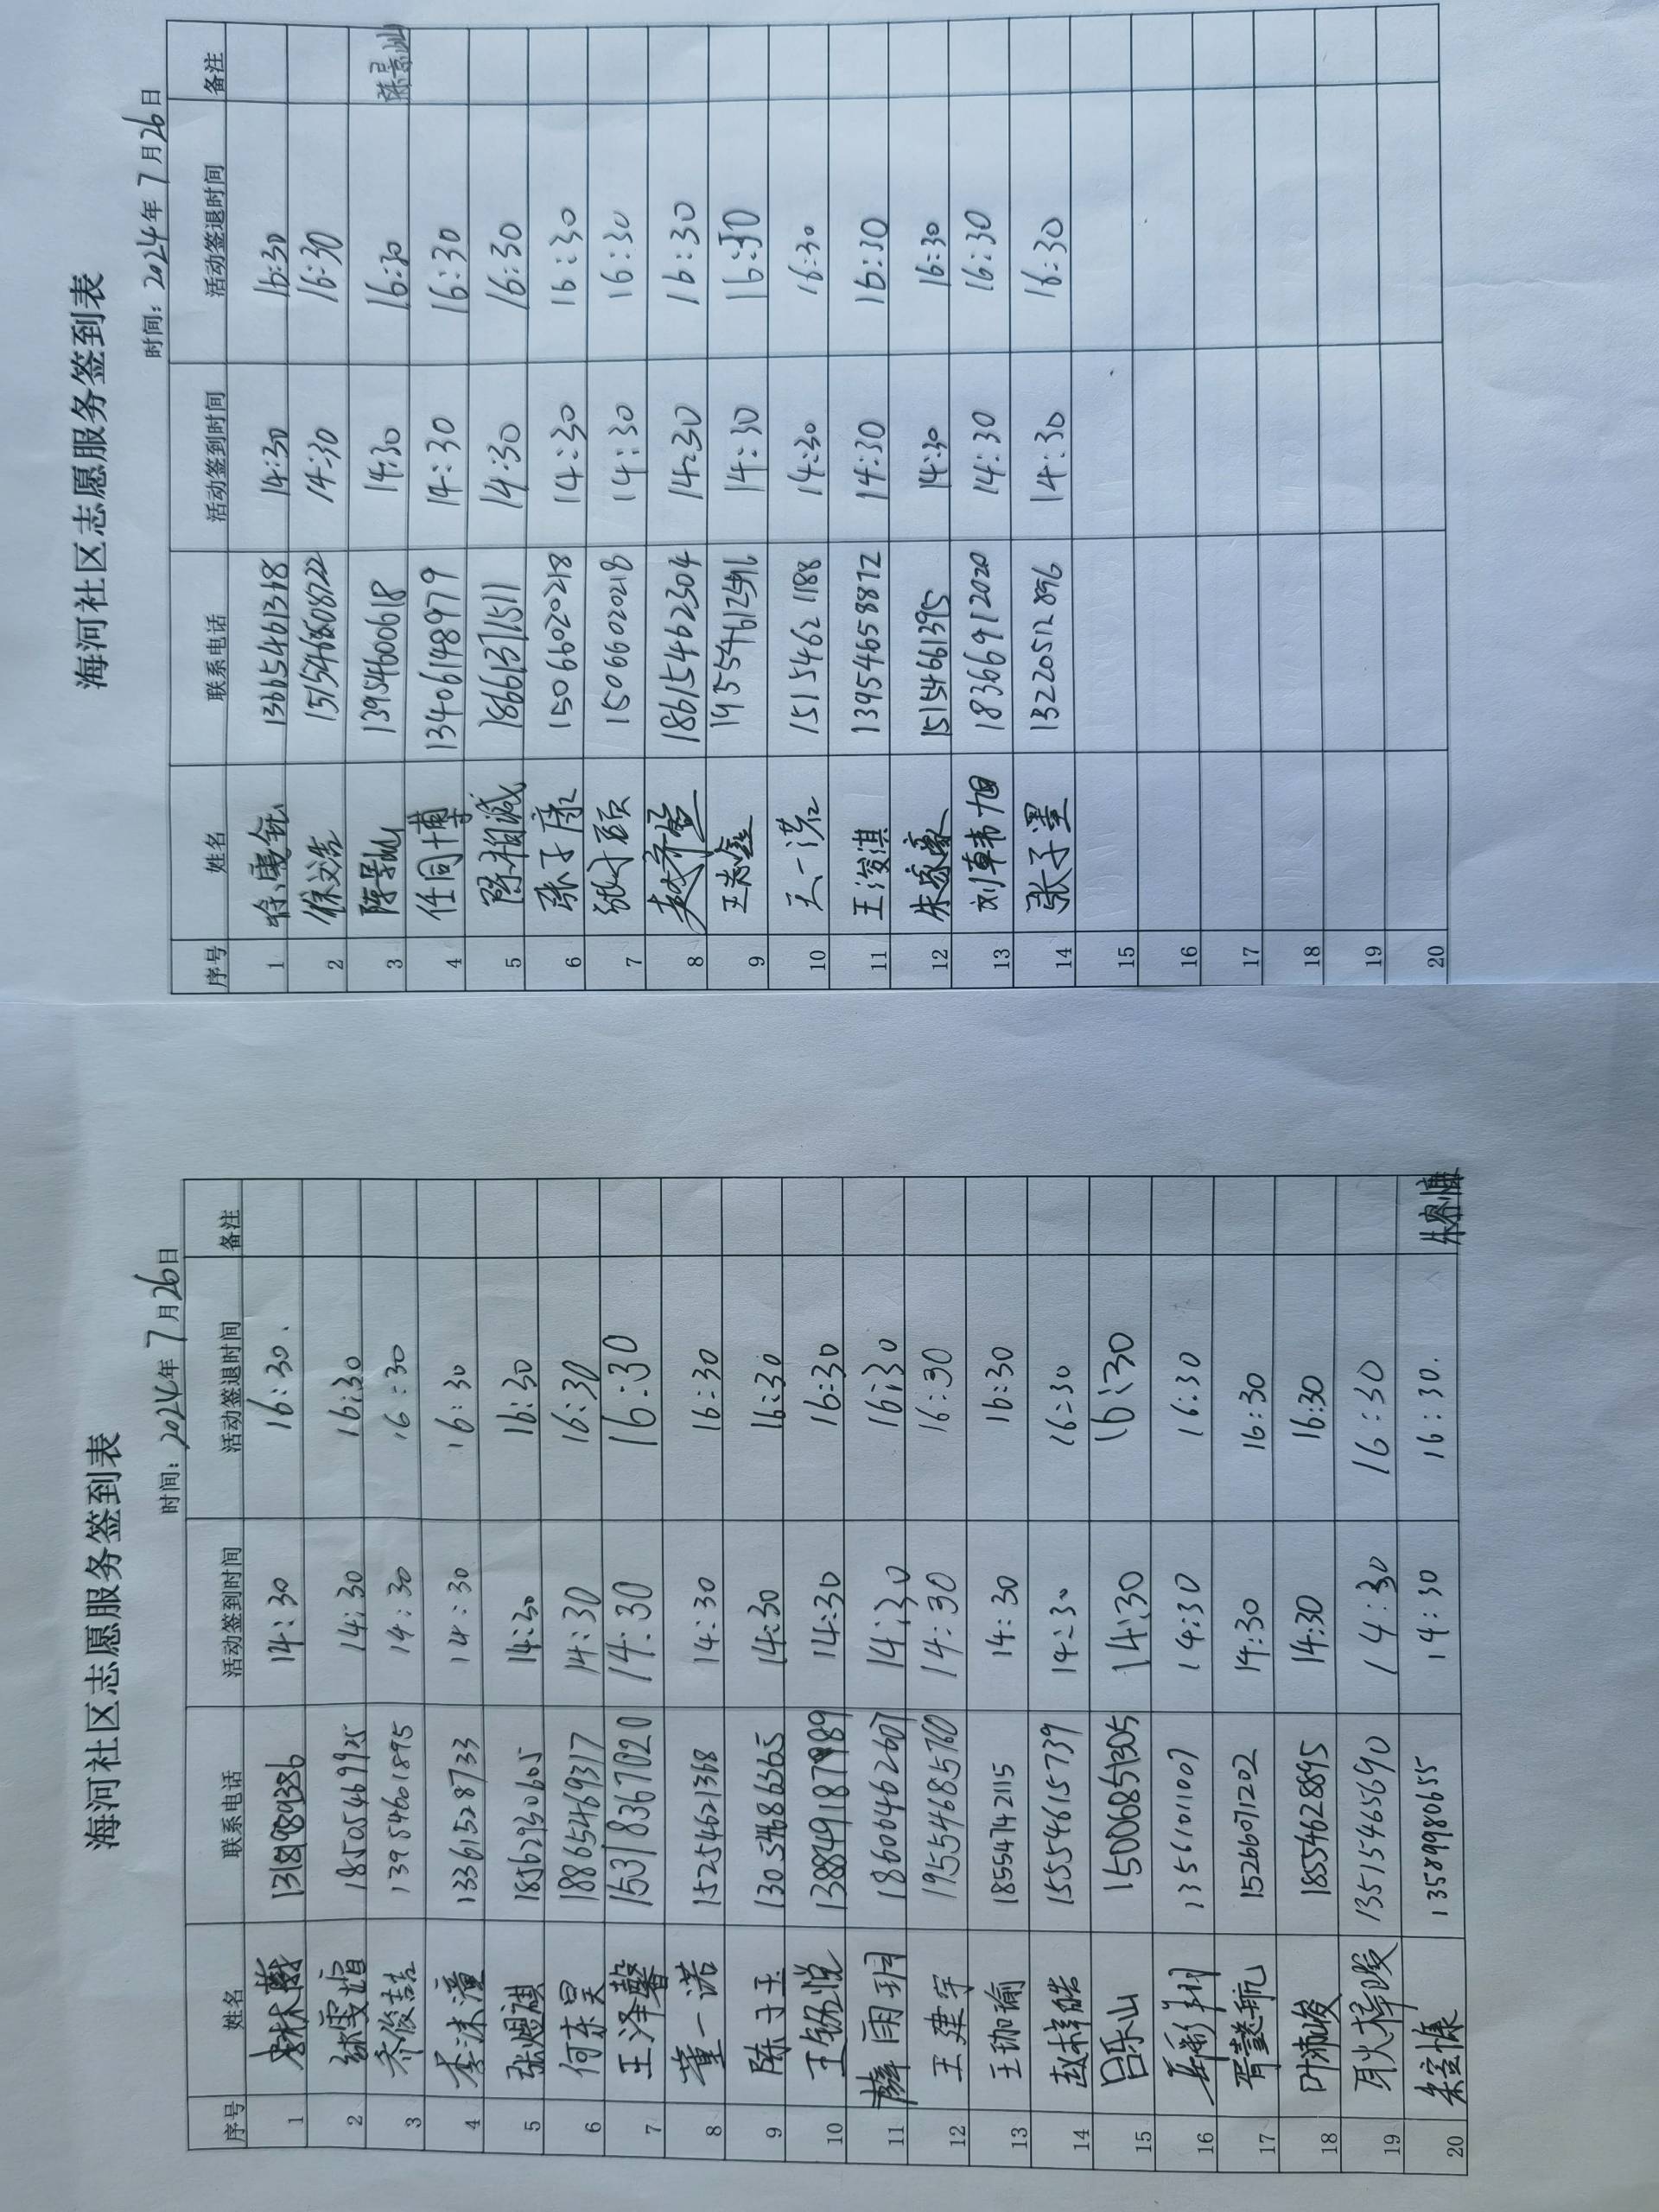 海河社区志愿服务签到表
时间：2024年7月26日
序号 姓名 联系电话 活动签到时间 活动签退时间 备注
1 13615461318 14:30 16:30
2 徐文浩 14:30 16:30
3 陈景灿 13954600618 14:30 16:30 陈景灿
4 任同博 13406148979 14:30 16:30
5 陈相诚 18661371511 14:30 16:30
6 张子康 15066020218 14:30 16:30
7 张子硕 15066020218 14:30 16:30
8 18615462304 14:30 16:30
9 王志鑫 14:30 16:30
10 王一诺 15154621188 14:30 16:30
11 王浚淇 13954658872 14:30 16:30
12 朱家豪 15154661395 14:30 16:30
13 刘韦旭 18366912020 14:30 16:30
14 张子墨 13220512896 14:30 16:30
15
16
17
18
19
20
海河社区志愿服务签到表
时间：2024年7月26日
序号 姓名 联系电话 活动签到时间 活动签退时间 备注
1 14:30 16:30.
2 18505469925 14:30 16:30
3 乔俊喆 13954601895 14:30 16:30
4 李沫潼 13361528733 14:30 16:30
5 张煜祺 18562930605 14:30 16:30
6 何东昊 18865469317 14:30 16:30
7 王泽馨 15318367020 14:30 16:30
8 董一诺 15254621368 14:30 16:30
9 陈于玉 13054686365 14:30 16:30
10 王铭悦 14:30 16:30
11 薛雨玥 18606462607 14:30 16:30
12 王建宇 19554685760 14:30 16:30
13 王珈瑜 18554742115 14:30 16:30
14 15554615739 14:30 16:30
15 吕乐山 15006851305 14:30 16:30
16 13561011007 14:30 16:30
17 胥懿航 15266071202 14:30 16:30
18 叶沛峻 18554628895 14:30 16:30
19 耿梓峻 13515465690 14:30 16:30
20 13589980655 14:30 16:30.